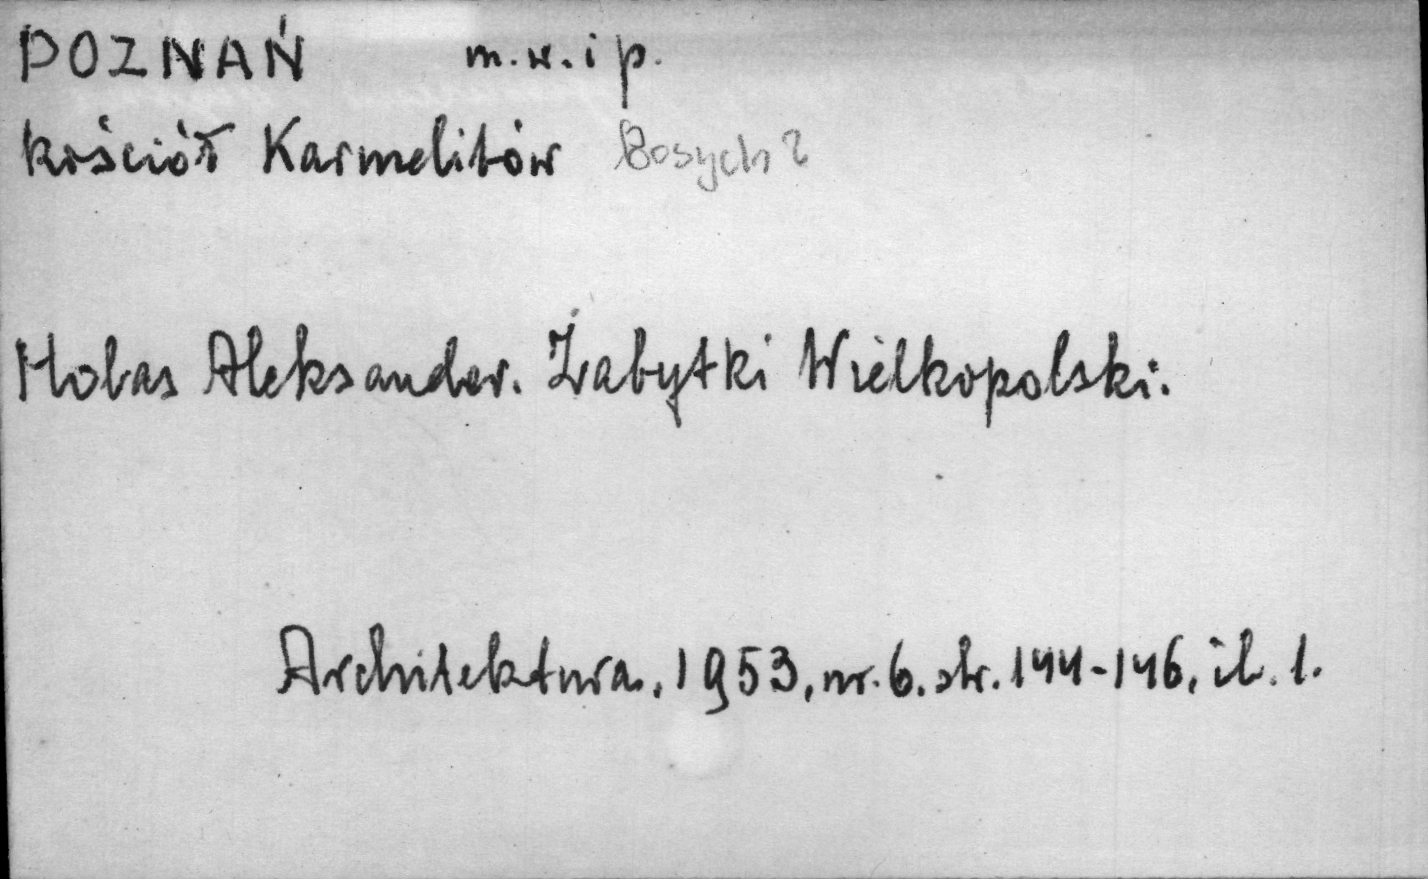 POZNAŃ m.w. i p.
kościół Karmelitów Bosych?
Holas Aleksander. Zabytki Wielkopolski.
Architektura, 1953, nr. 6. str. 144-146, il. 1.